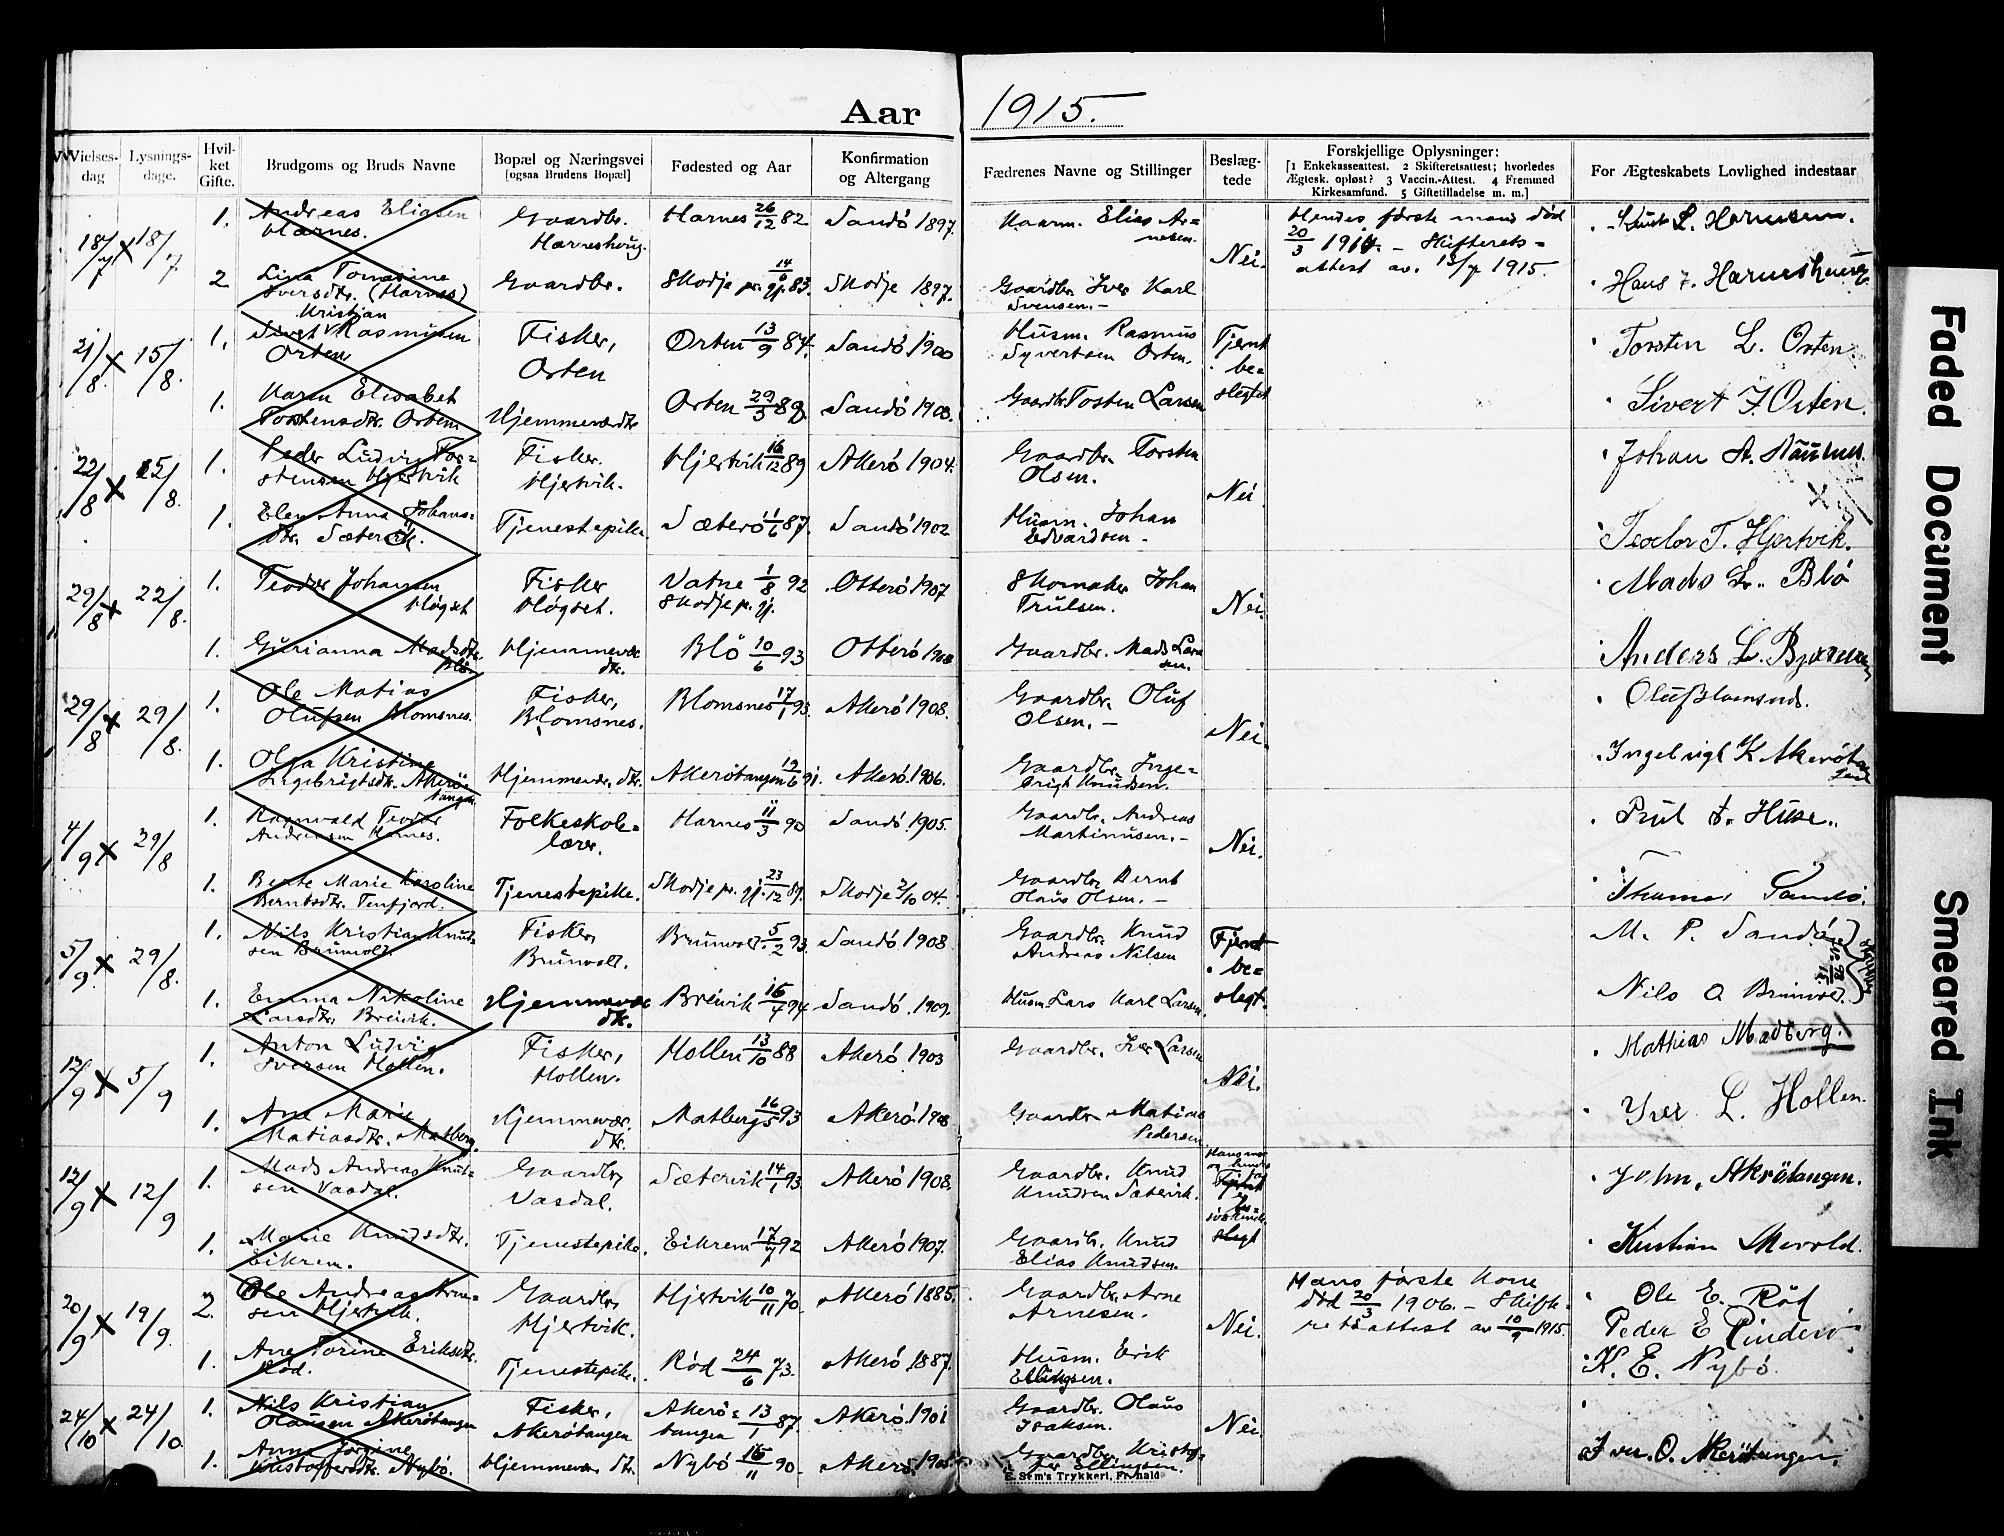 Aar 1915.
Vielses-dag
Lysnings-dage.
Hvil-ket Gifte.
Brudgoms og Bruds Navne
Bopæl og Næringsvei
[ogsaa Brudens Bopæl]
Fødested og Aar
Konfirmation og Altergang
Fædrenes Navne og Stillinger
Beslæg-tede
Forskjellige Oplysninger:
[1 Enkekasseattest. 2 Skifteretsattest; hvorledes
Ægtesk. opløst? 3 Vaccin.-Attest. 4 Fremmed
Kirkesamfund. 5 Giftetilladelse m. m.]
For Ægteskabets Lovlighed indestaar
18/7 18/7 1. Andreas Eliasen Harnes. Gaardbr. Harneshoug. Harnes 26/12 82 Sandö 1897. Elias Ar=nesen. Nei. Hendes første mand død
20/3 1914. – Skifterets=
attest av. 13/7 1915.
Knut L. Harnesen.
2 Lina Tomasine Iversdtr. (Harnes) Gaardbr. Skodje pr.gj. 14/6 83. Skodje 1897. Gaardbr. Iver Karl Svensen.–
Hans J. Harneshaug
21/8. 15/8. 1. Sivert Kristian Rasmusen Orten Fisker, Orten Orten 13/9 84. Sandö 1900 Husm. Rasmus Syvertsen Orten. Fjernt be=slegtet
Torsten L. Orten.
1. Karen Elisabet Tostensdtr. Orten Hjemmeværdtr. Orten 29/3 89. Sandö 1903. Gaardbr. Tosten Larsen
Sivert J. Orten.
22/8 15/8. 1. Peder Ludvig Tor=stensen Hjertvik Fisker. Hjertvik. Hjertvik 16/12 89 Akerö 1904. Gaardbr. Torsten Olsen. Nei.
Johan A. Naustnes.
1. Elen Anna Johans=dtr. Sæterö. Tjenestepike. Sæterö 1/6 87. Sandö 1902 Husm. Johan Edvardsen.
Teodor T. Hjertvik.
29/8 22/8. 1. Teodor Johansen Högset Fisker Högset. Vatne 1/8 92 Skodje pr.gj. Otterö 1907 Skomaker Johan Trulsen. Nei.
Mads L. Blö
1. Gurianna Madsdtr. Blö. Hjemmevær. dtr. Blö 10/6 93 Otterö 1908 Gaardbr. Mads Larsen.
Anders L. Bjørnen
29/8 29/8. 1. Ole Matias Olufsen Blomsnes. Fisker, Blomsnes. Blomsnes 17/1 93. Akerö 1908. Gaardbr. Oluf Olsen.– Nei.
Oluf Blomsnes.
1. Olga Kristine Ingebrigtsdtr. Akerö=tangen Hjemmevær. dtr. Akerötangen 19/6 91. Akerö 1906. Gaardbr. Inge=brigt Knudsen.
Ingebrigt K Akerötangen
4/9 29/8 1. Ragnvald Teodor Andreasen Harnes. Folkeskole=lærer. Harnes 11/3 90 Sandö 1905. Gaardbr. Andreas Martinusen.– Nei.
Poul A. Huse.
1. Berte Marie Karoline Berntsdtr. Tenfjord. Tjenestepike. Skodje pr. gj. 23/12 89. Skodje 2/10 04. Gaardbr. Bernt Olaus Olsen.–
Thomas Sandö.
5/9. 29/8. 1. Nils Kristian Knud=sen Brunvoll. Fisker, Brunvoll. Brunvoll. 5/2 93. Sandö 1908. Gaardbr. Knud Andreas Nilsen Fjernt be=slegt.
M. P. Sandöe
1. Emma Nikoline Larsdtr. Breivik. Hjemmevær. dtr. Breivik 16/4 94 Sandö 1909. Husm Lars Karl Larsen.
Nils O Brunvol.
12/9 5/9 1. Anton Ludvig Iversen Hollen. Fisker, Hollen. Hollen 13/10 88 Akerö 1903 Gaardbr. Iver Larsen Nei.
Mathias Madberg.
1. Ane Marie Matiasdtr. Matberg. Hjemmevær. dtr. Matberg 16/5 93 Akerö 1908 Gaardbr. Matias Pedersen.
Iver L. Hollen.
12/9 12/9 1. Mads Andreas Knud=sen Vasdal. Gaardbr, Vasdal. Sætervik 14/1 93 Akerö 1908. Gaardbr. Knud Knudsen Sætervik. Fjernt be=slegt
John, Akrötangen.
1. Marie Knudsdtr. Eikrem. Tjenestepike. Eikrem 17/7 92 Akerö 1907. Gaardbr. Knud Elias Knudsen.
Kristian Mevold.
20/9 19/9. 2. Ole Andreas Arne=sen Hjertvik. Gaardbr, Hjertvik. Hjertvik 10/11 70. Akerö 1885. Gaardbr. Arne Arnesen. Nei. Hans første kone
död 20/3 1906. – Skifte=
retsattest av 10/9 1915.
Ole E. Röd
Peder E Rinderö
1. Ane Torine Eriksdtr. Röd. Tjenestepike. Röd 24/6 73. Akerö 1887. Husm. Erik Ellingsen.
K. E. Nybö
24/10 24/10 1. Nils Kristian Olausen Akerötangen Fisker, Akerötangen Akerö=tangen 13/1 87. Akerö 1901 Gaardbr. Olaus Isaksen. Nei.
1. Anna Jørgine Kristoffersdtr. Nybö. Hjemmevær dtr. Nybö 16/11 90. Akerö 1905 Gaardbr. Kristof=fer Ellingsen.
Iver. O. Akerötangen.
E. Sem's Trykkeri, Fr.hald
Faded Document
Smeared Ink